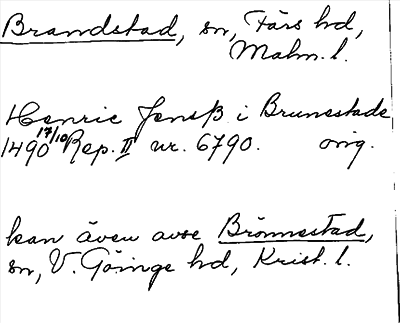 Brandstad, sn, Färs hd,
Malm. l.
Henric Jensß i Brunestade
1490 17/10 Rep. II nr. 6790. orig.
kan även avse Brönnestad,
sn, V. Göinge hd, Krist. l.